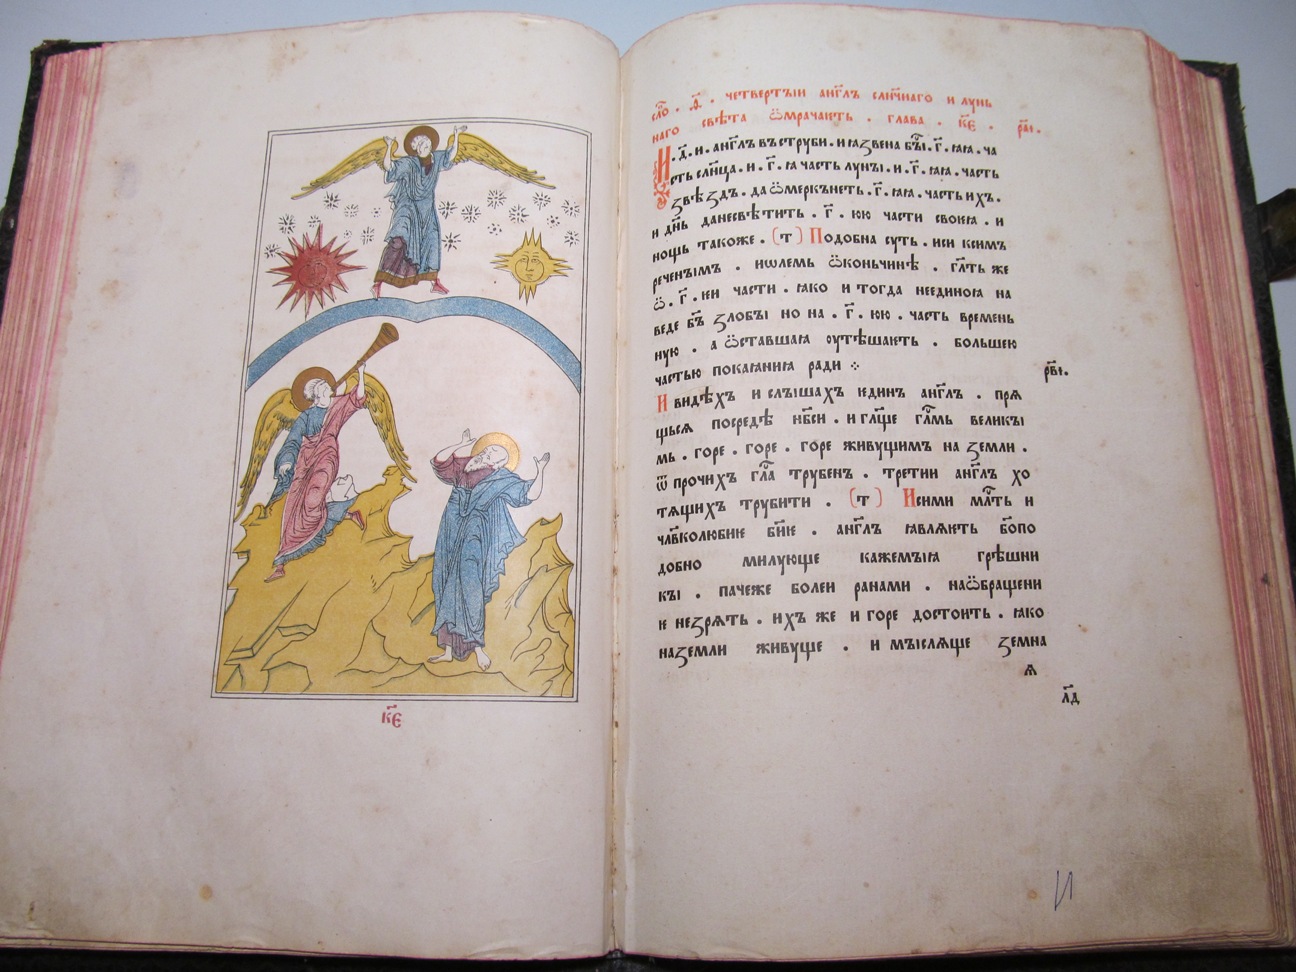 к҃е
сло҃ . д҃ . четвертыи анг҃лъ слн҃чнаго и лунь
наго свѣта ѿмрачаѥть . глава . к҃е . рд҃і .
И . д҃ . и . анг҃лъ въструби . и ꙗзвена бы҃ . г҃ . ꙗꙗ . ча
сть слн҃ца . и . г҃ . ꙗ часть луны . и . г҃ . ꙗꙗ . часть
ꙁвѣꙁдъ . да ѿмеркънеть . г҃ . ꙗꙗ . часть ихъ .
и дн҃ь данесвѣтить . г҃ . юю части своѥꙗ . и
нощь такоже . (т) Подобна суть . иси ксимъ
реченымъ . иѡлемь ѿконьчинѣ . гл҃ть же
ѿ . г҃ . ѥи части . ꙗко и тогда неединоꙗ на
веде бг҃ъ ꙁлобы но на . г҃ . юю . часть времень
ную . а ѿставшаꙗ оутѣшаѥть . большею
частью покаꙗниꙗ ради ⁘
рв҃і .
И видѣхъ и слышахъ ѥдинъ анг҃лъ . прѧ
щьсѧ посредѣ нб҃си . и гл҃ще гл҃мь великы
мь . горе . горе . горе живущимъ на ꙁемли .
ѿ прочихъ гл҃а трубенъ . третии анг҃лъ хо
тѧщихъ трубити . (т) Исими мл҃ть и
чл҃вколюбиѥ бж҃иѥ . анг҃лъ ꙗвлѧѥть бо҃по
добно милующе кажемыꙗ грѣшни
кы . пачеже болеи ранами . наѿбращени
ѥ неꙁрѧть . ихъ же и горе достоить . ꙗко
наꙁемли живуще . и мыслѧще ꙁемна
ѧ
л҃д
И